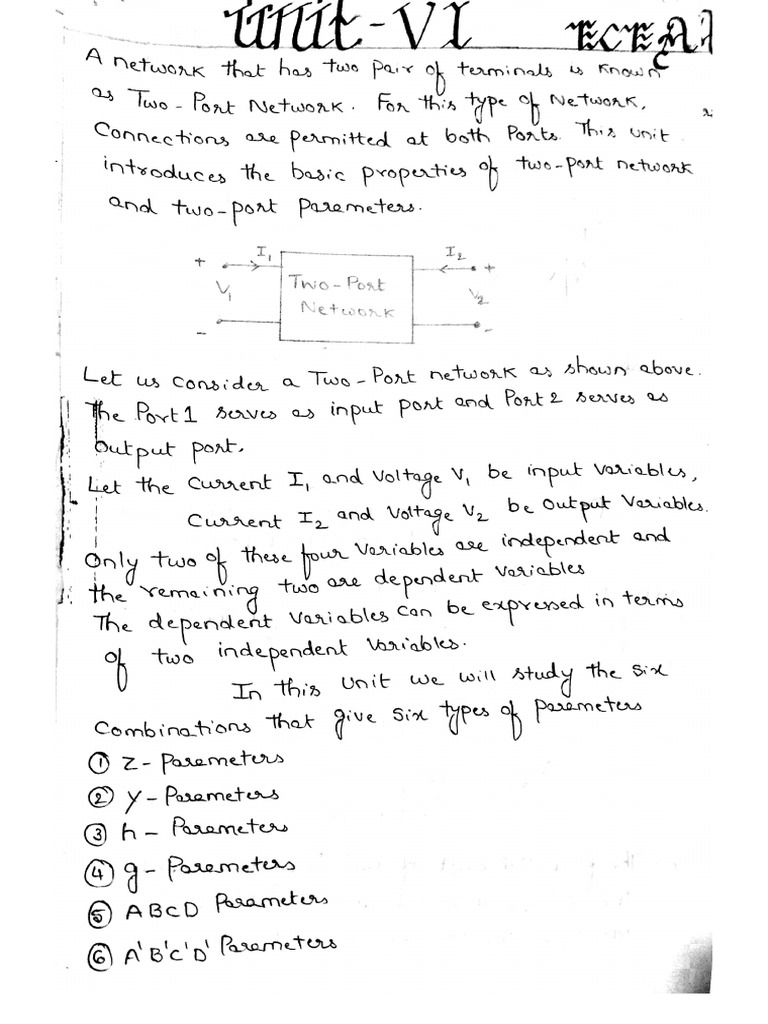 Unit-VI ECEA
A network that has two pair of terminals is known
as Two-Port Network. For this type of Network,
Connections are permitted at both Ports. This unit
introduces the basic properties of two-port network
and two-port Parameters.
I1 I2
+ +
Two-Port
V1 V2
Network
- -
Let us consider a Two-Port network as shown above.
The Port1 serves as input port and Port 2 serves as
output port.
Let the Current I1 and Voltage V1 be input variables,
Current I2 and Voltage V2 be output Variables.
Only two of these four Variables are independent and
the remaining two are dependent Variables
The dependent Variables can be expressed in terms
of two independent Variables.
In this Unit we will study the six
Combinations that give six types of parameters
① Z-Parameters
② Y-Parameters
③ h-Parameters
④ g-Parameters
⑤ ABCD Parameters
⑥ A'B'C'D' Parameters